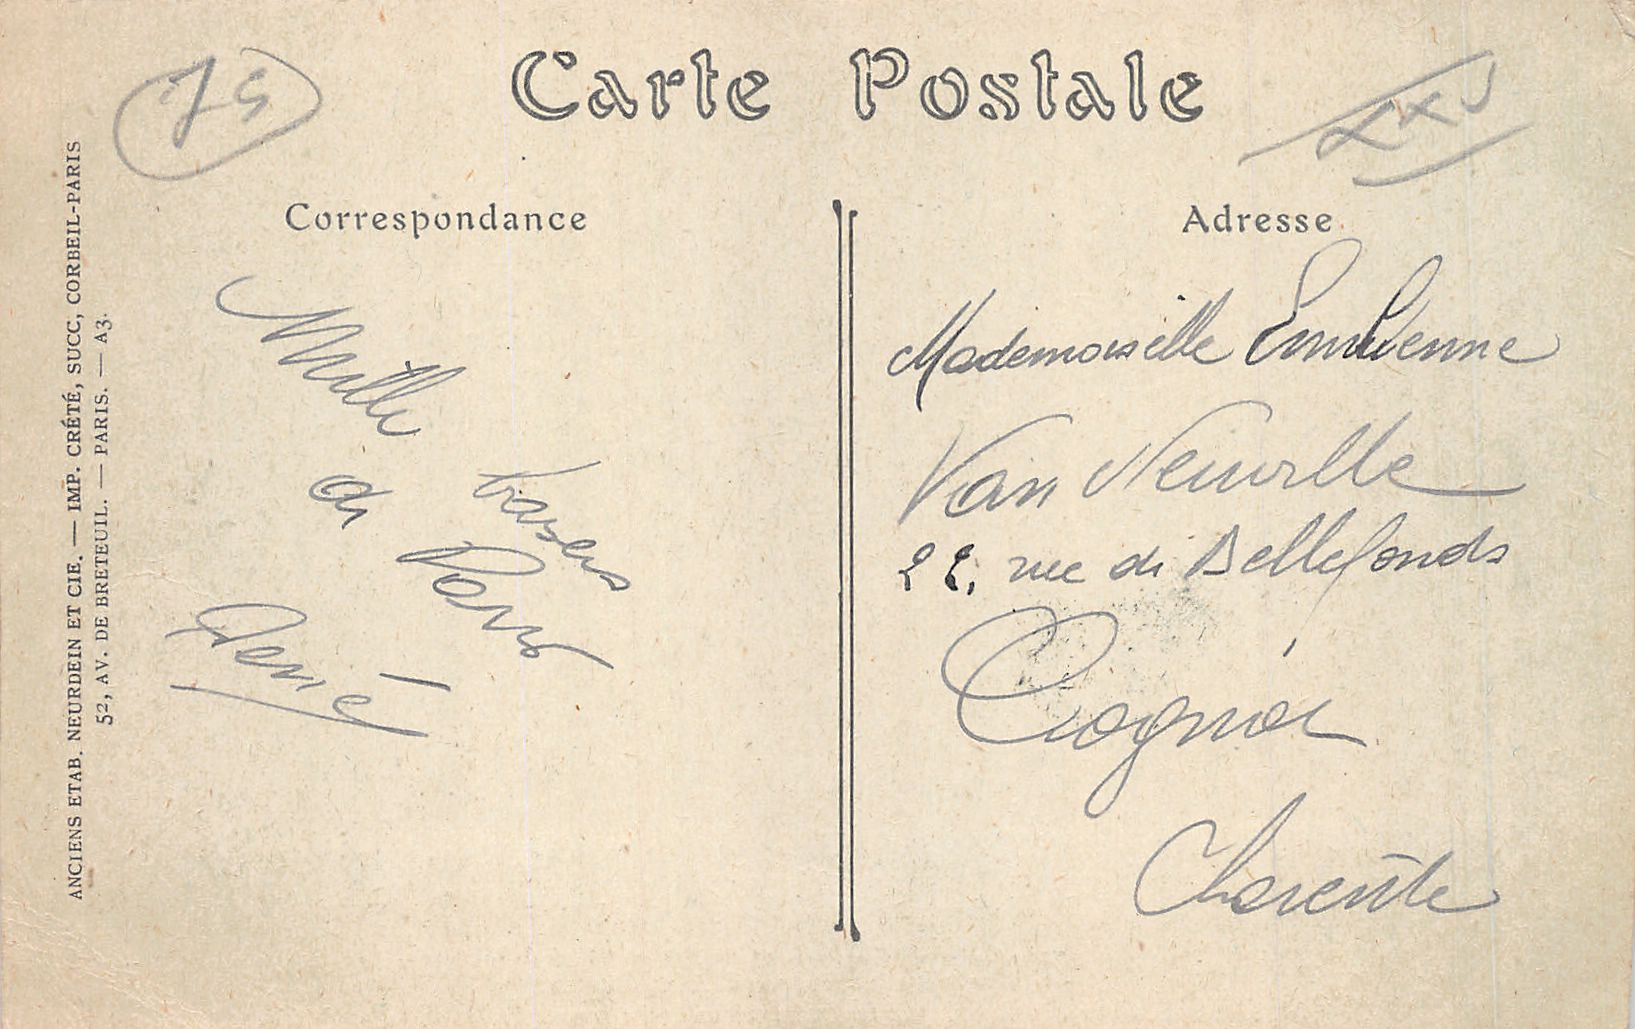 Carte Postale
75
Correspondance
Adresse
ANCIENS ETAB. NEURDEIN ET CIE. — IMP. CRÉTÉ, SUCC, CORBEIL-PARIS
52, AV. DE BRETEUIL. — PARIS. — A3.
Mille
baisers
de
Paris
René
Mademoiselle Emilienne
Van Neuville
22, rue de Bellefonds
Cognac
Charente